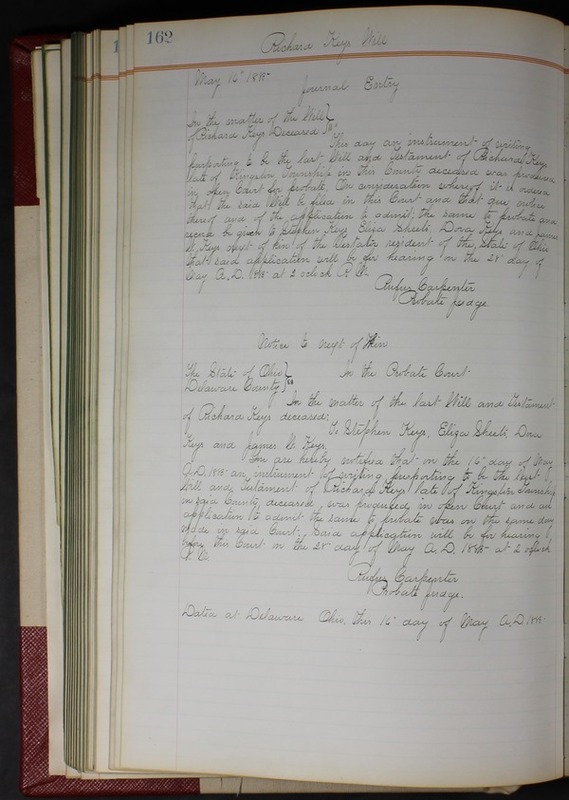 162
Richard Keys Will
May 16" 1895
Journal Entry
In the matter of the Will }
of Richard Keys Deceased } ss
This day an instrument of writing
purporting to be the last Will and Testament of Richard Keys
late of Kingston Township in this County deceased was produced
in open Court for probate. On consideration whereof it is ordered
that the said Will be filed in this Court and that due notice
thereof and of the application to admit the same to probate and
record be given to Stephen Keys Eliza Sheets, Dora Keys and James
W. Keys next of kin of the Testator resident of the State of Ohio
that said application will be for hearing on the 28" day of
May A.D. 1895 at 2 oclock P.M.
Rufus Carpenter
Probate Judge.
Notice to next of Kin
The State of Ohio } In the Probate Court
Delaware County } ss
In the matter of the last Will and Testament
of Richard Keys deceased;
To Stephen Keys, Eliza Sheets, Dora
Keys and James W. Keys.
You are hereby notified that on the 16" day of May
A.D. 1895 an instrument of writing purporting to be the last
Will and Testament of Richard Keys late of Kingston Township
in said County deceased, was produced in open Court and an
application to admit the same to probate was on the same day
made in said Court. Said application will be for hearing
before this Court on the 28" day of May A.D. 1895 at 2 oclock
P.M.
Rufus Carpenter
Probate Judge.
Dated at Delaware Ohio, this 16" day of May A.D. 1895